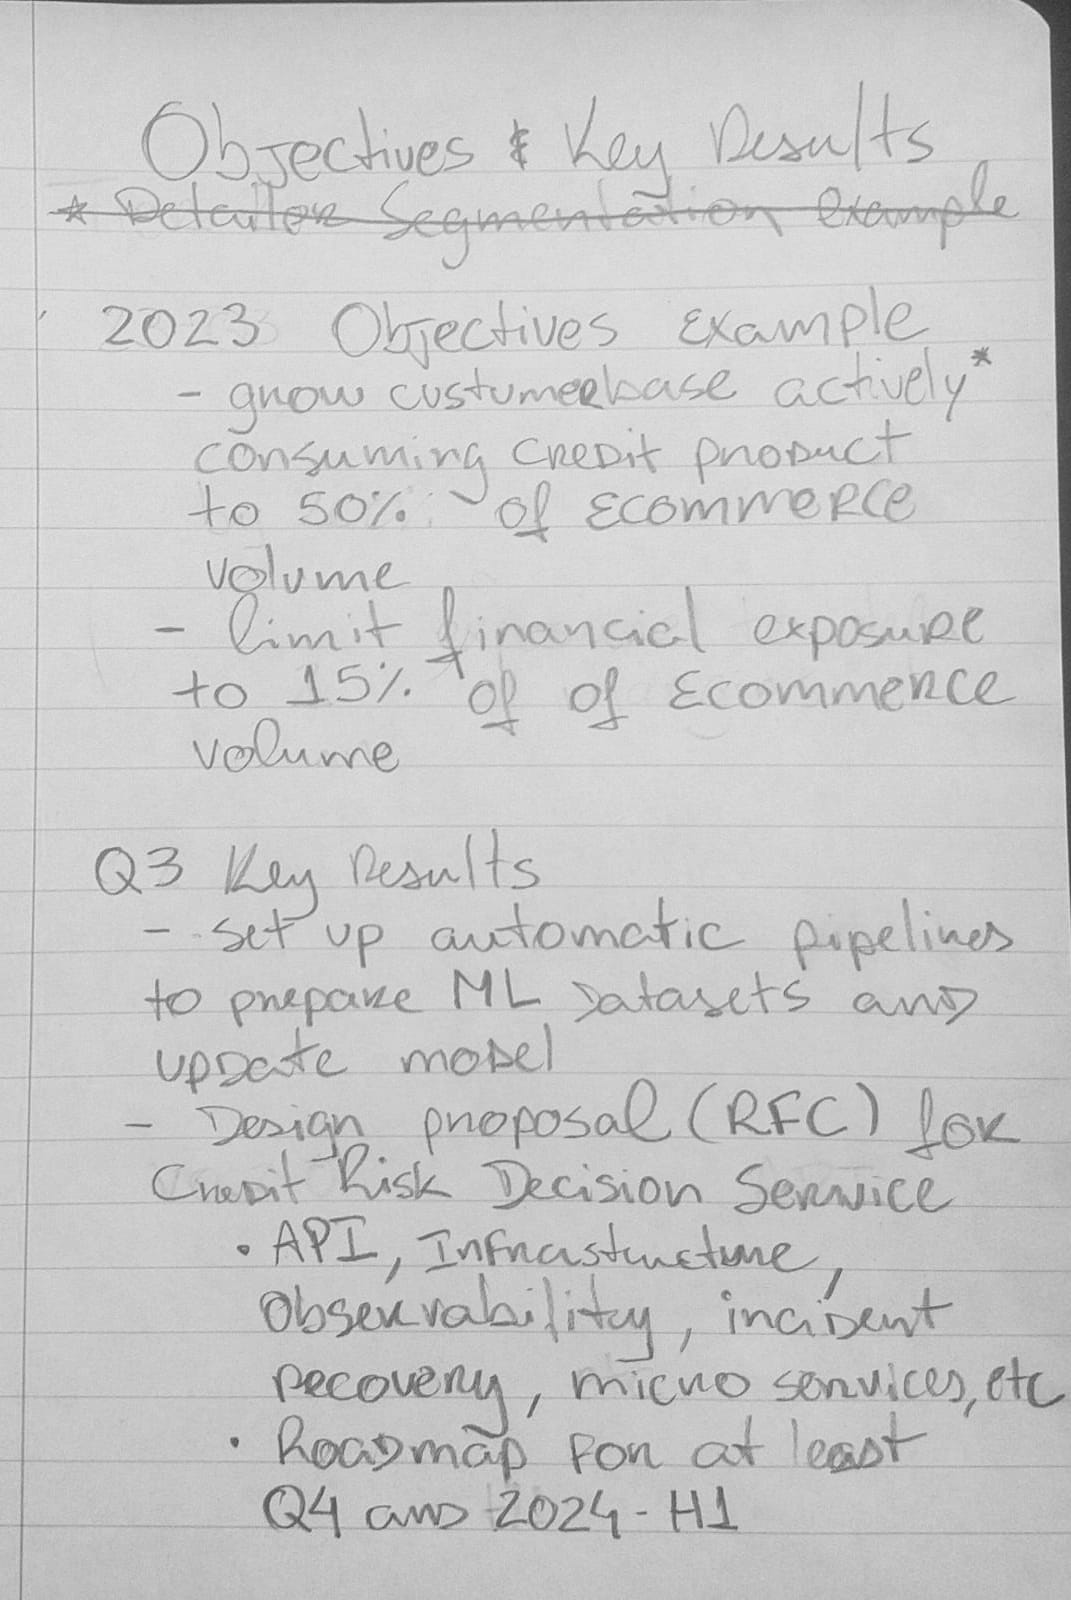 Objectives & Key Results
* Detailor Segmentation example
2023 Objectives Example
- grow custumerbase actively*
consuming credit product
to 50% of Ecommerce
volume
- limit financial exposure
to 15% of of Ecommerce
volume
Q3 Key Results
- set up automatic pipelines
to prepare ML Datasets and
update model
- Design proposal (RFC) for
Credit Risk Decision Service
• API, Infrastructure,
Observability, incident
recovery, micro services, etc
• Roadmap for at least
Q4 and 2024 - H1